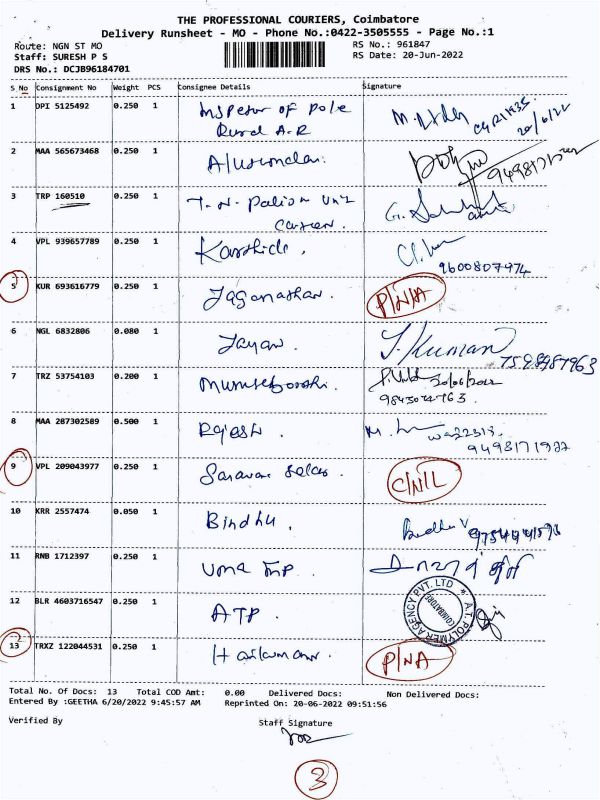 THE PROFESSIONAL COURIERS, Coimbatore
Delivery Runsheet - MO - Phone No.:0422-3505555 - Page No.:1
Route: NGN ST MO RS No.: 961847
Staff: SURESH P S RS Date: 20-Jun-2022
DRS No.: DCJB96184701
S No Consignment No Weight PCS Consignee Details Signature
1 DPI 5125492 0.250 1 Inspector of Pole
Rural A.R 20/6/22
2 MAA 565673468 0.250 1
3 TRP 160510 0.250 1 T.N. G.
4 VPL 939657789 0.250 1
9600807974
5 KUR 693616779 0.250 1 Jaganathan P/N/A
6 NGL 6832806 0.080 1 Jayan J. Kumar 7598987963
7 TRZ 53754103 0.200 1 20/06/2022
8 MAA 287302589 0.500 1 Rajesh . M.
9498171922
9 VPL 209043977 0.250 1 Saravana Sales . C/N/L
10 KRR 2557474 0.050 1 Bindhu .
11 RNB 1712397 0.250 1 Uma
12 BLR 4603716547 0.250 1 ATP. A.T. POLYMER AGENCY PVT. LTD COIMBATORE
13 TRXZ 122044531 0.250 1 P/NA
Total No. Of Docs: 13 Total COD Amt: 0.00 Delivered Docs: Non Delivered Docs:
Entered By :GEETHA 6/20/2022 9:45:57 AM Reprinted On: 20-06-2022 09:51:56
Verified By Staff Signature
3